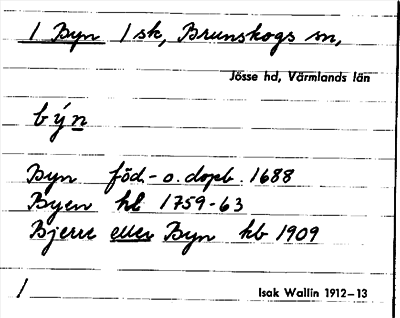 1 Byn 1 sk, Brunskogs sn,
Jösse hd, Värmlands län
býn
Byn föd.- o. dopb. 1688
Byen hl 1759-63
Bjerre eller Byn kb 1909
1 Isak Wallin 1912-13